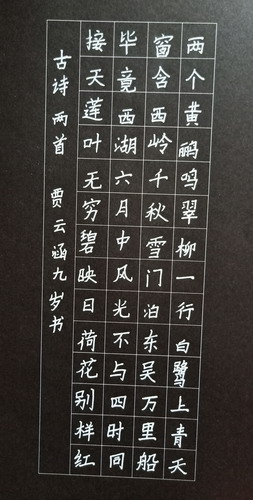 两个黄鹂鸣翠柳一行白鹭上青天
窗含西岭千秋雪门泊东吴万里船
毕竟西湖六月中风光不与四时同
接天莲叶无穷碧映日荷花别样红
古诗两首 贾云涵九岁书